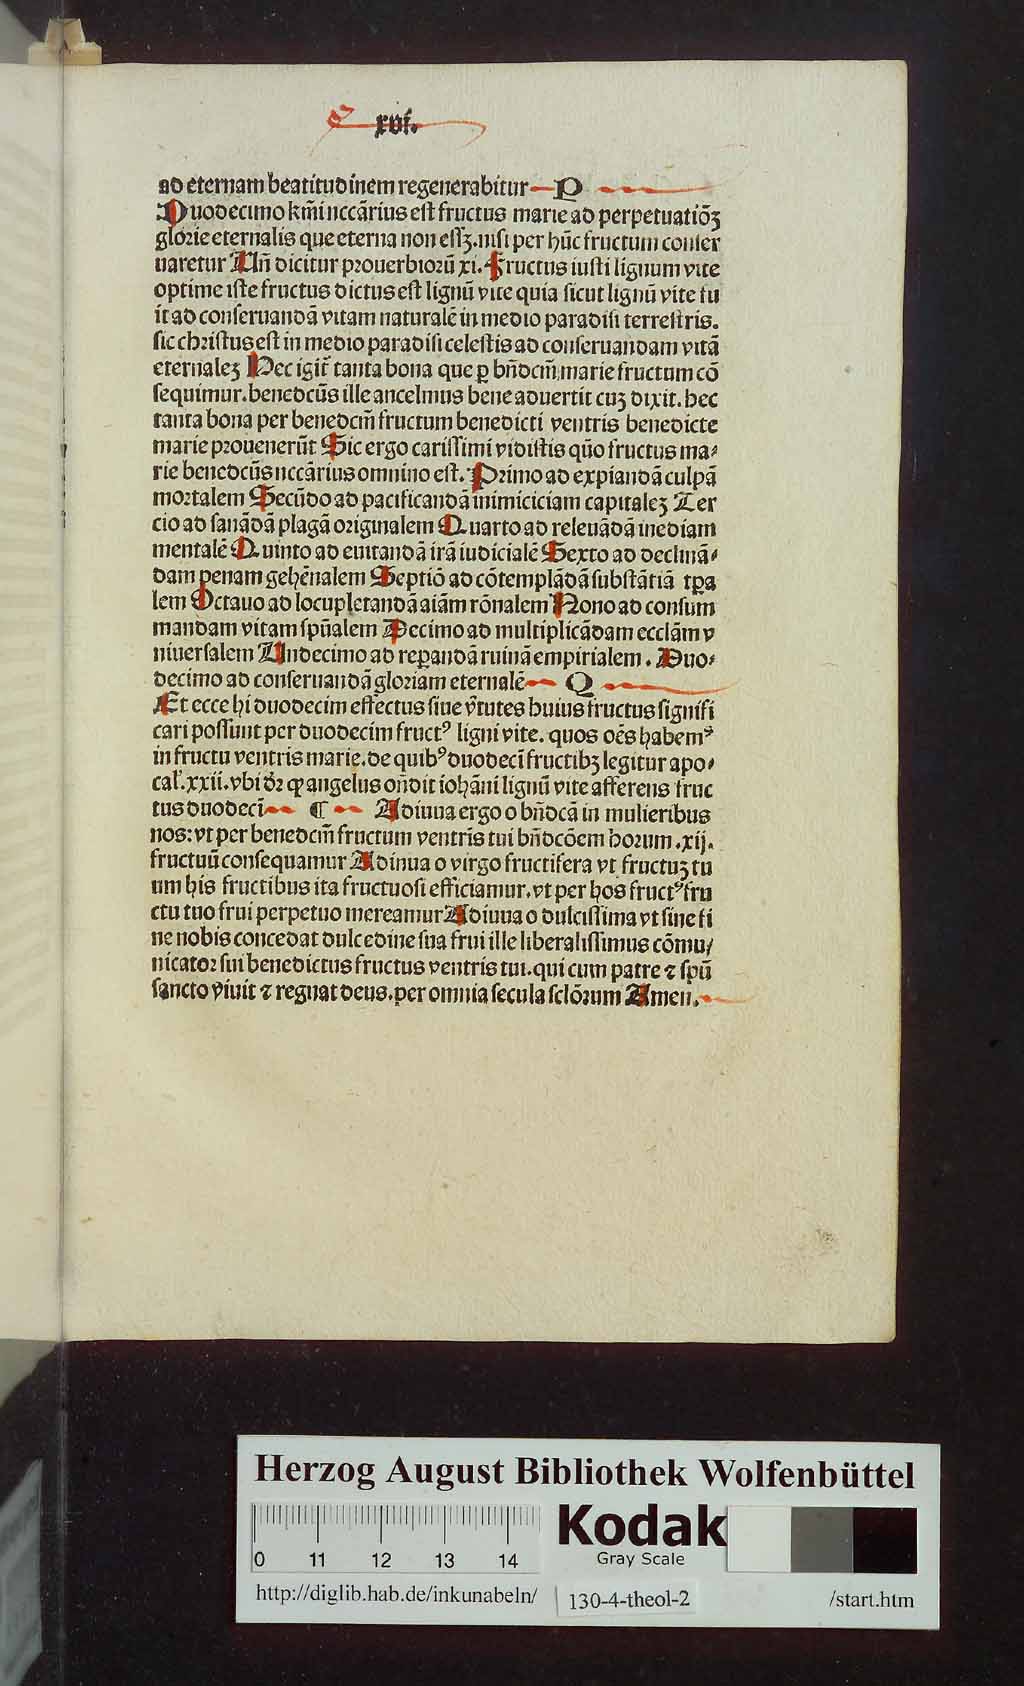 xvi.
ad eternam beatitudinem regenerabitur P
Duodecimo km̃i nccãrius est fructus marie ad perpetuatiõꝫ
glorie eternalis que eterna non essꝫ. nisi per hũc fructum conser
uaretur Uñ dicitur prouerbiorũ xi. Fructus iusti lignum vite
optime iste fructus dictus est lignũ vite quia sicut lignũ vite fu
it ad conseruandã vitam naturalẽ in medio paradisi terrestris.
sic christus est in medio paradisi celestis ad conseruandam vitã
eternaleꝫ Hec igit̃ tanta bona que ꝑ bñdcm̃ marie fructum cõ
sequimur. benedcũs ille ancelmus bene aduertit cuꝫ dixit. hec
tanta bona per benedcm̃ fructum benedicti ventris benedicte
marie prouenerũt Sic ergo carissimi vidistis quõ fructus ma⸗
rie benedcũs nccãrius omnino est. Primo ad expiandã culpã
mortalem Secũdo ad pacificandã inimiciciam capitaleꝫ Ter
cio ad sanãdã plagã originalem Quarto ad releuãdã inediam
mentalẽ Quinto ad euitandã irã iudicialẽ Sexto ad declinã⸗
dam penam gehẽnalem Septiõ ad cõtemplãdã substãtiã tꝑa
lem Octauo ad locupletandã aiãm rõnalem Nono ad consum
mandam vitam spũalem Decimo ad multiplicãdam ecclãm v
niuersalem Undecimo ad reꝑandã ruinã empirialem. Duo⸗
decimo ad conseruandã gloriam eternalẽ Q
Et ecce hi duodecim effectus siue ṽtutes huius fructus signifi
cari possunt per duodecim fructꝰ ligni vite. quos oẽs habemꝰ
in fructu ventris marie. de quibꝰ duodecĩ fructibꝫ legitur apo⸗
cal̃. xxii. vbi dr̃ ꝙ angelus oñdit iohãni lignũ vite afferens fruc
tus duodecĩ ¶ Adiuua ergo o bñdcã in mulieribus
nos: vt per benedcm̃ fructum ventris tui bñdcõem horum .xij.
fructuũ consequamur Adiuua o virgo fructifera vt fructuꝫ tu
um his fructibus ita fructuosi efficiamur. vt per hos fructꝰ fru
ctu tuo frui perpetuo mereamur Adiuua o dulcissima vt sine fi
ne nobis concedat dulcedine sua frui ille liberalissimus cõmu/
nicator sui benedictus fructus ventris tui. qui cum patre ⁊ spũ
sancto viuit ⁊ regnat deus. per omnia secula sclõrum Amen.
Herzog August Bibliothek Wolfenbüttel
0 11 12 13 14
Kodak
Gray Scale
http://diglib.hab.de/inkunabeln/ 130-4-theol-2 /start.htm